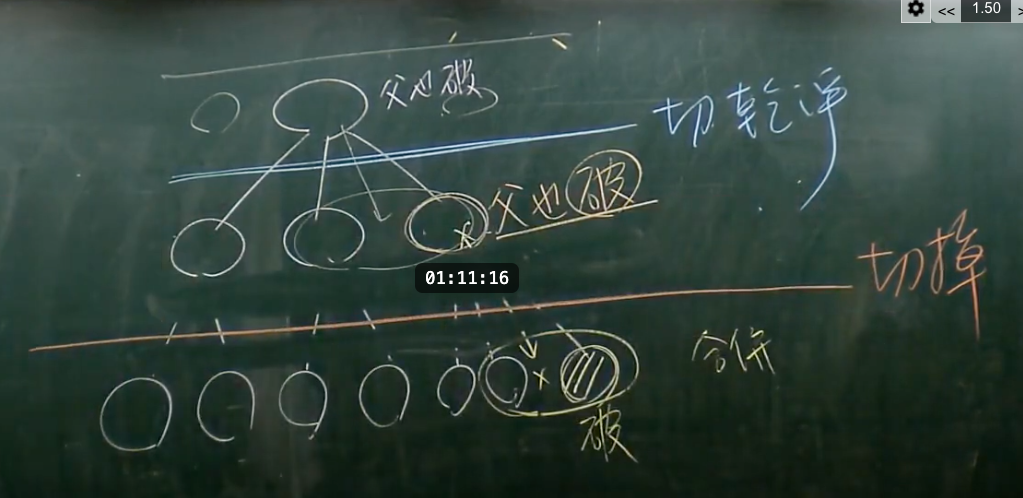 << 1.50 >
父也破
切乾淨
父也破
01:11:16
切掉
合併
破